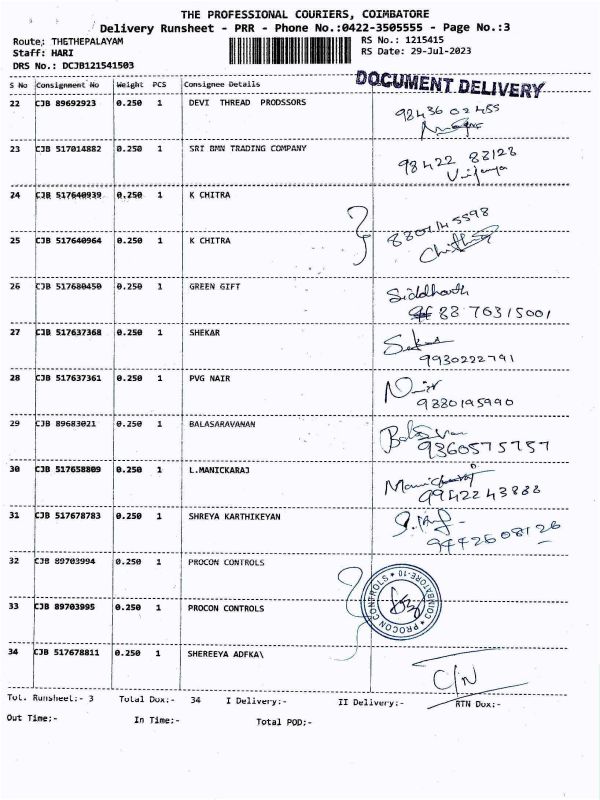 THE PROFESSIONAL COURIERS, COIMBATORE
Delivery Runsheet - PRR - Phone No.:0422-3505555 - Page No.:3
Route: THETHEPALAYAM RS No.: 1215415
Staff: HARI RS Date: 29-Jul-2023
DRS No.: DCJB121541503
S No Consignment No Weight PCS Consignee Details DOCUMENT DELIVERY
22 CJB 89692923 0.250 1 DEVI THREAD PRODSSORS 98436 02455
23 CJB 517014882 0.250 1 SRI BMN TRADING COMPANY 98422 83128
24 CJB 517640939 0.250 1 K CHITRA
25 CJB 517640964 0.250 1 K CHITRA 8807145598
26 CJB 517680450 0.250 1 GREEN GIFT Siddharth
88 70315001
27 CJB 517637368 0.250 1 SHEKAR
9930222791
28 CJB 517637361 0.250 1 PVG NAIR Nair
9880195990
29 CJB 89683021 0.250 1 BALASARAVANAN
9360575757
30 CJB 517658809 0.250 1 L.MANICKARAJ
9942243888
31 CJB 517678783 0.250 1 SHREYA KARTHIKEYAN
9442608126
32 CJB 89703994 0.250 1 PROCON CONTROLS
33 CJB 89703995 0.250 1 PROCON CONTROLS
PROCON CONTROLS * COIMBATORE-10 *
34 CJB 517678811 0.250 1 SHEREEYA ADFKA\
C/N
Tot. Runsheet:- 3 Total Dox:- 34 I Delivery:- II Delivery:- RTN Dox:-
Out Time:- In Time:- Total POD:-